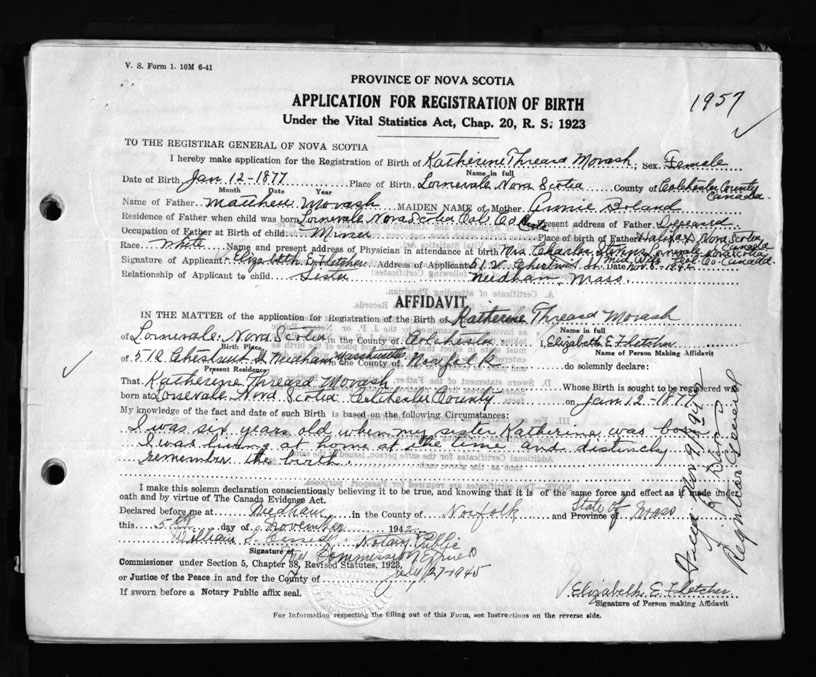 V. S. Form 1. 10M 6-41
PROVINCE OF NOVA SCOTIA
1957
APPLICATION FOR REGISTRATION OF BIRTH
Under the Vital Statistics Act, Chap. 20, R. S. 1923
TO THE REGISTRAR GENERAL OF NOVA SCOTIA
I hereby make application for the Registration of Birth of Katherine Threasd Movash; Sex Female
Name in full
Date of Birth Jan 12-1877 Place of Birth. Lornevale Nova Scotia County of Colchester County
Month Date Year Canada
Name of Father Matthew Movash MAIDEN NAME of Mother Annie Boland
Residence of Father when child was born Lornevale Nova Scotia Col. Co present address of Father. Deceased
Occupation of Father at Birth of child. Miner Place of birth of Father Halifax Nova Scotia
Race. White Name and present address of Physician in attendance at birth Mrs. Charles Canada
Signature of Applicant Elizabeth E. Fletcher Address of Applicant 512 Chestnut St. Date Nov. 6-1942
Relationship of Applicant to child Sister Needham, Mass.
AFFIDAVIT
IN THE MATTER of the application for Registration of the Birth of Katherine Threasd Movash
Name in full
of Lornevale Nova Scotia in the County of Colchester I, Elizabeth E Fletcher
Birth Place Name of Person Making Affidavit
of 512 Chestnut St Needham Massachusetts in the County of Norfolk do solemnly declare:
Present Residence
That Katherine Threasd Movash Whose Birth is sought to be registered was
born at Lornevale Nova Scotia Colchester County on Jan 12-1877
My knowledge of the fact and date of such Birth is based on the following Circumstances:
I was six years old when my sister Katherine was born
I was living at home at the time and distinctly
remember the birth.
I make this solemn declaration conscientiously believing it to be true, and knowing that it is of the same force and effect as if made under
oath and by virtue of The Canada Evidence Act.
Declared before me at Needham in the County of Norfolk and Province of State of Mass
this 5th day of November 1942
William Notary Public
Signature of
My Commission Expires
Commissioner under Section 5, Chapter 38, Revised Statutes, 1923,
or Justice of the Peace in and for the County of July 27-1945
If sworn before a Notary Public affix seal.
Elizabeth E Fletcher
Signature of Person making Affidavit
For Information respecting the filling out of this Form, see Instructions on the reverse side.
Registrar General